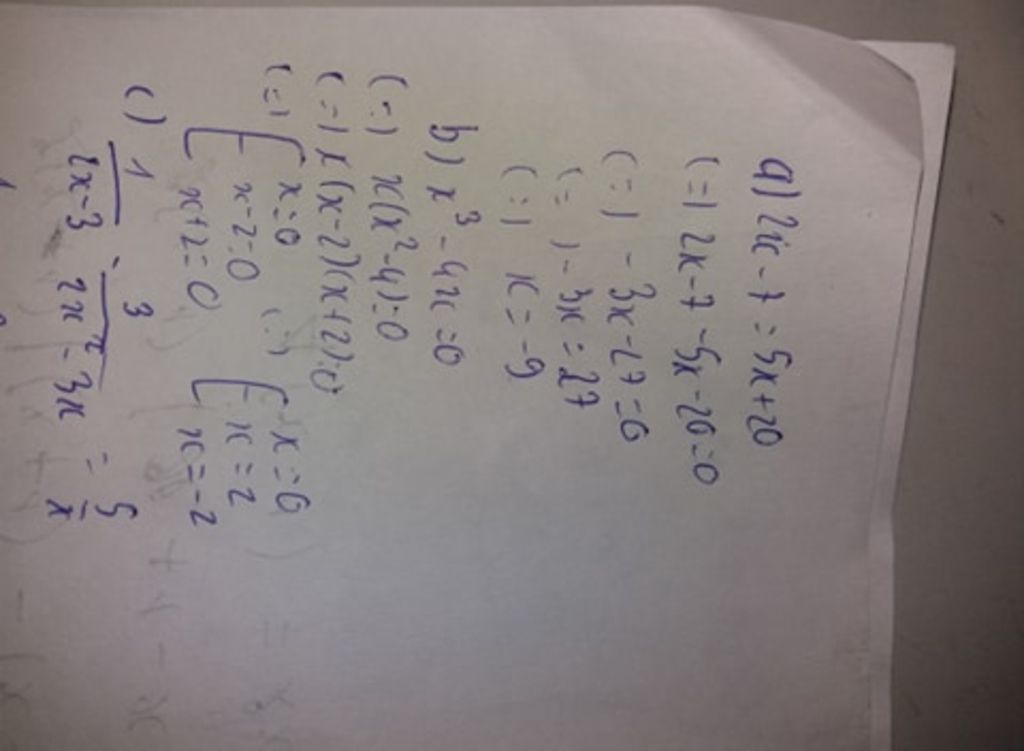 a) 2x - 7 = 5x + 20
(=) 2x - 7 - 5x - 20 = 0
(=) - 3x - 27 = 0
(=) - 3x = 27
(=) x = -9
b) x³ - 4x = 0
(=) x(x² - 4) = 0
(=) x(x - 2)(x + 2) = 0
(=) [ x = 0 (=) [ x = 0
x - 2 = 0 x = 2
x + 2 = 0 x = -2
c) 1/(2x-3) - 3/(2x² - 3x) = 5/x